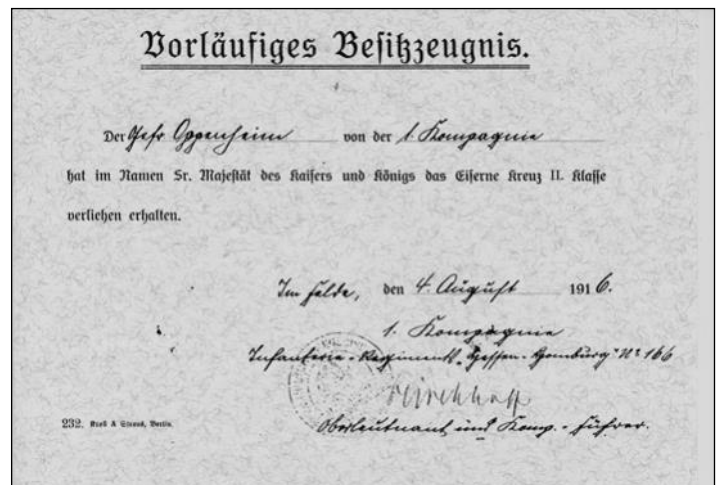 Vorläufiges Besitzzeugnis.
Der Gefr. Oppenheim von der 1. Kompagnie
hat im Namen Sr. Majestät des Kaisers und Königs das Eiserne Kreuz II. Klasse
verliehen erhalten.
Im Felde, den 4. August 1916.
1. Kompagnie
Infanterie-Regiments "Hessen-Homburg" Nr 166
Kirchhoff
Oberleutnant und Komp.-Führer.
232. Kroll & Straus, Berlin.